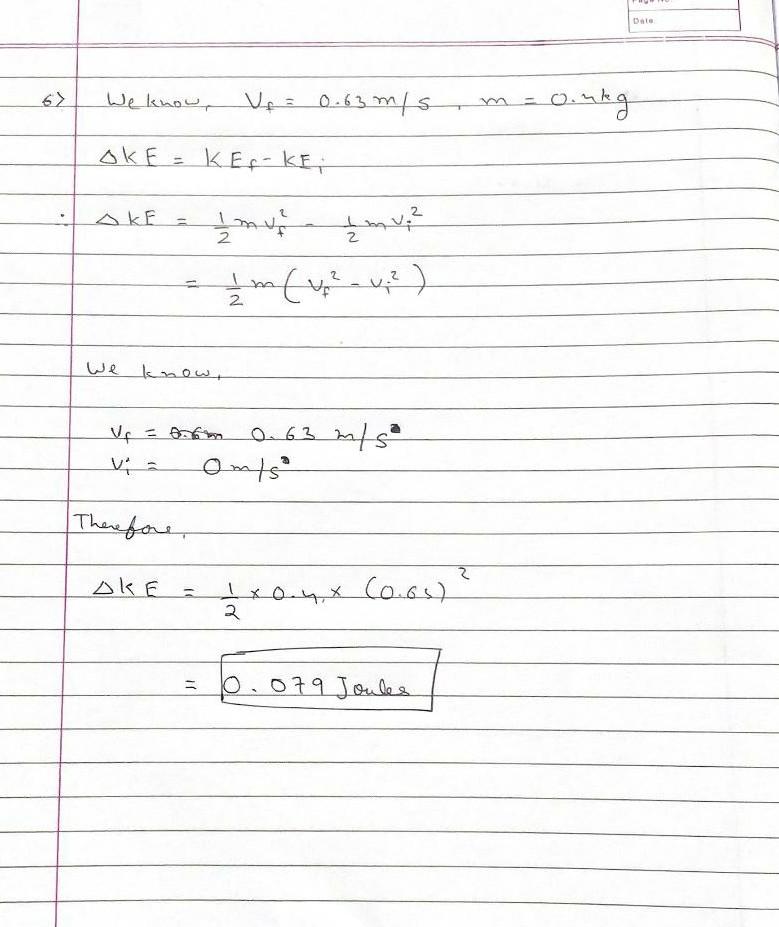 Date
6> We know, Vf = 0.63 m/s , m = 0.4kg
ΔKE = KEf - KEi
∴ ΔKE = 1/2 m vf² - 1/2 m vi²
= 1/2 m ( vf² - vi² )
We know,
vf = 0.63 m/s
vi = 0 m/s
Therefore,
ΔKE = 1/2 × 0.4 × (0.63)²
= 0.079 Joules